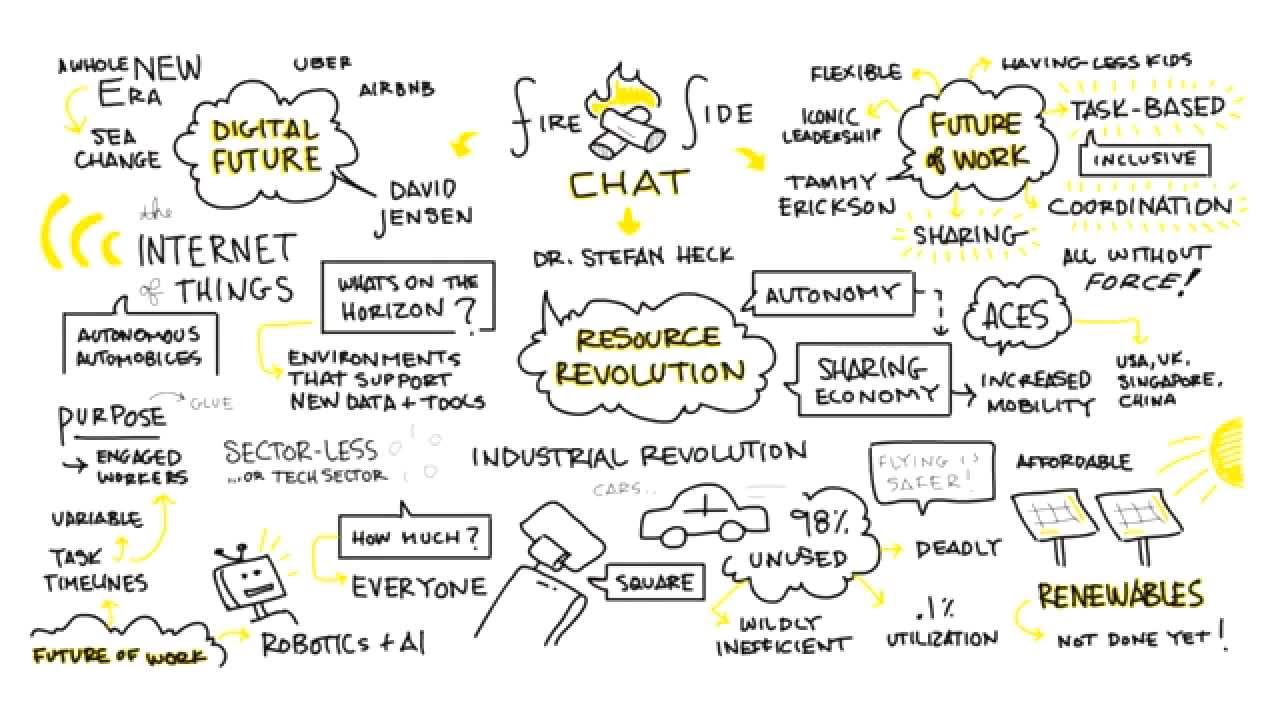 A WHOLE NEW
ERA
SEA
CHANGE
UBER
AIRBNB
DIGITAL
FUTURE
DAVID
JENSEN
FIRE SIDE
CHAT
DR. STEFAN HECK
FLEXIBLE
HAVING LESS KIDS
ICONIC
LEADERSHIP
FUTURE
of WORK
TASK-BASED
INCLUSIVE
TAMMY
ERICKSON
COORDINATION
SHARING
ALL WITHOUT
FORCE!
the
INTERNET
of THINGS
AUTONOMOUS
AUTOMOBILES
WHATS ON THE
HORIZON?
ENVIRONMENTS
THAT SUPPORT
NEW DATA + TOOLS
RESOURCE
REVOLUTION
AUTONOMY
SHARING
ECONOMY
INCREASED
MOBILITY
ACES
USA, UK,
SINGAPORE,
CHINA
PURPOSE
GLUE
ENGAGED
WORKERS
SECTOR-LESS
...OR TECH SECTOR
VARIABLE
TASK
TIMELINES
FUTURE OF WORK
ROBOTICS + AI
HOW MUCH?
EVERYONE
INDUSTRIAL REVOLUTION
CARS..
SQUARE
98%
UNUSED
FLYING IS
SAFER!
DEADLY
WILDLY
INEFFICIENT
.1%
UTILIZATION
AFFORDABLE
RENEWABLES
NOT DONE YET!